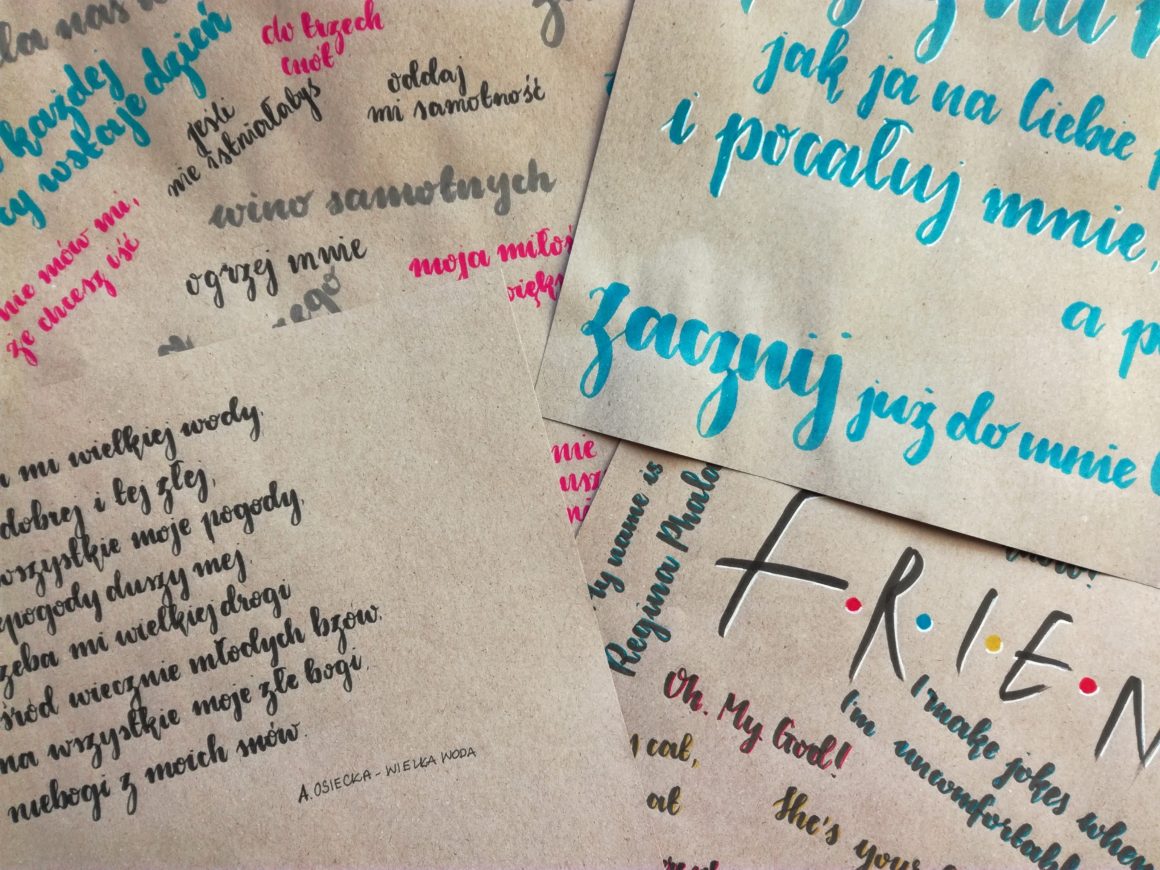 la nas
każdej
wstaje dzień
do trzech
cnót
jeśli
nie istniałabyś
oddaj
mi samotność
wino samotnych
nie mów mi,
że chcesz iść
ogrzej mnie
moja miłoś
jak ja na Ciebie
i pocałuj mnie,
a p
zacznij już do mnie
mi wielkiej wody,
dobrej i tej złej,
wszystkie moje pogody,
epogody duszy mej
zeba mi wielkiej drogi
śród wiecznie młodych bzów,
na wszystkie moje złe bogi,
niebogi z moich snów.
A. OSIECKA - WIELKA WODA
nie
usz
my name is
Regina Phala
F.R.I.E.N
Oh. My. God!
I make jokes when
I'm uncomfortabl
cat,
at
She's your